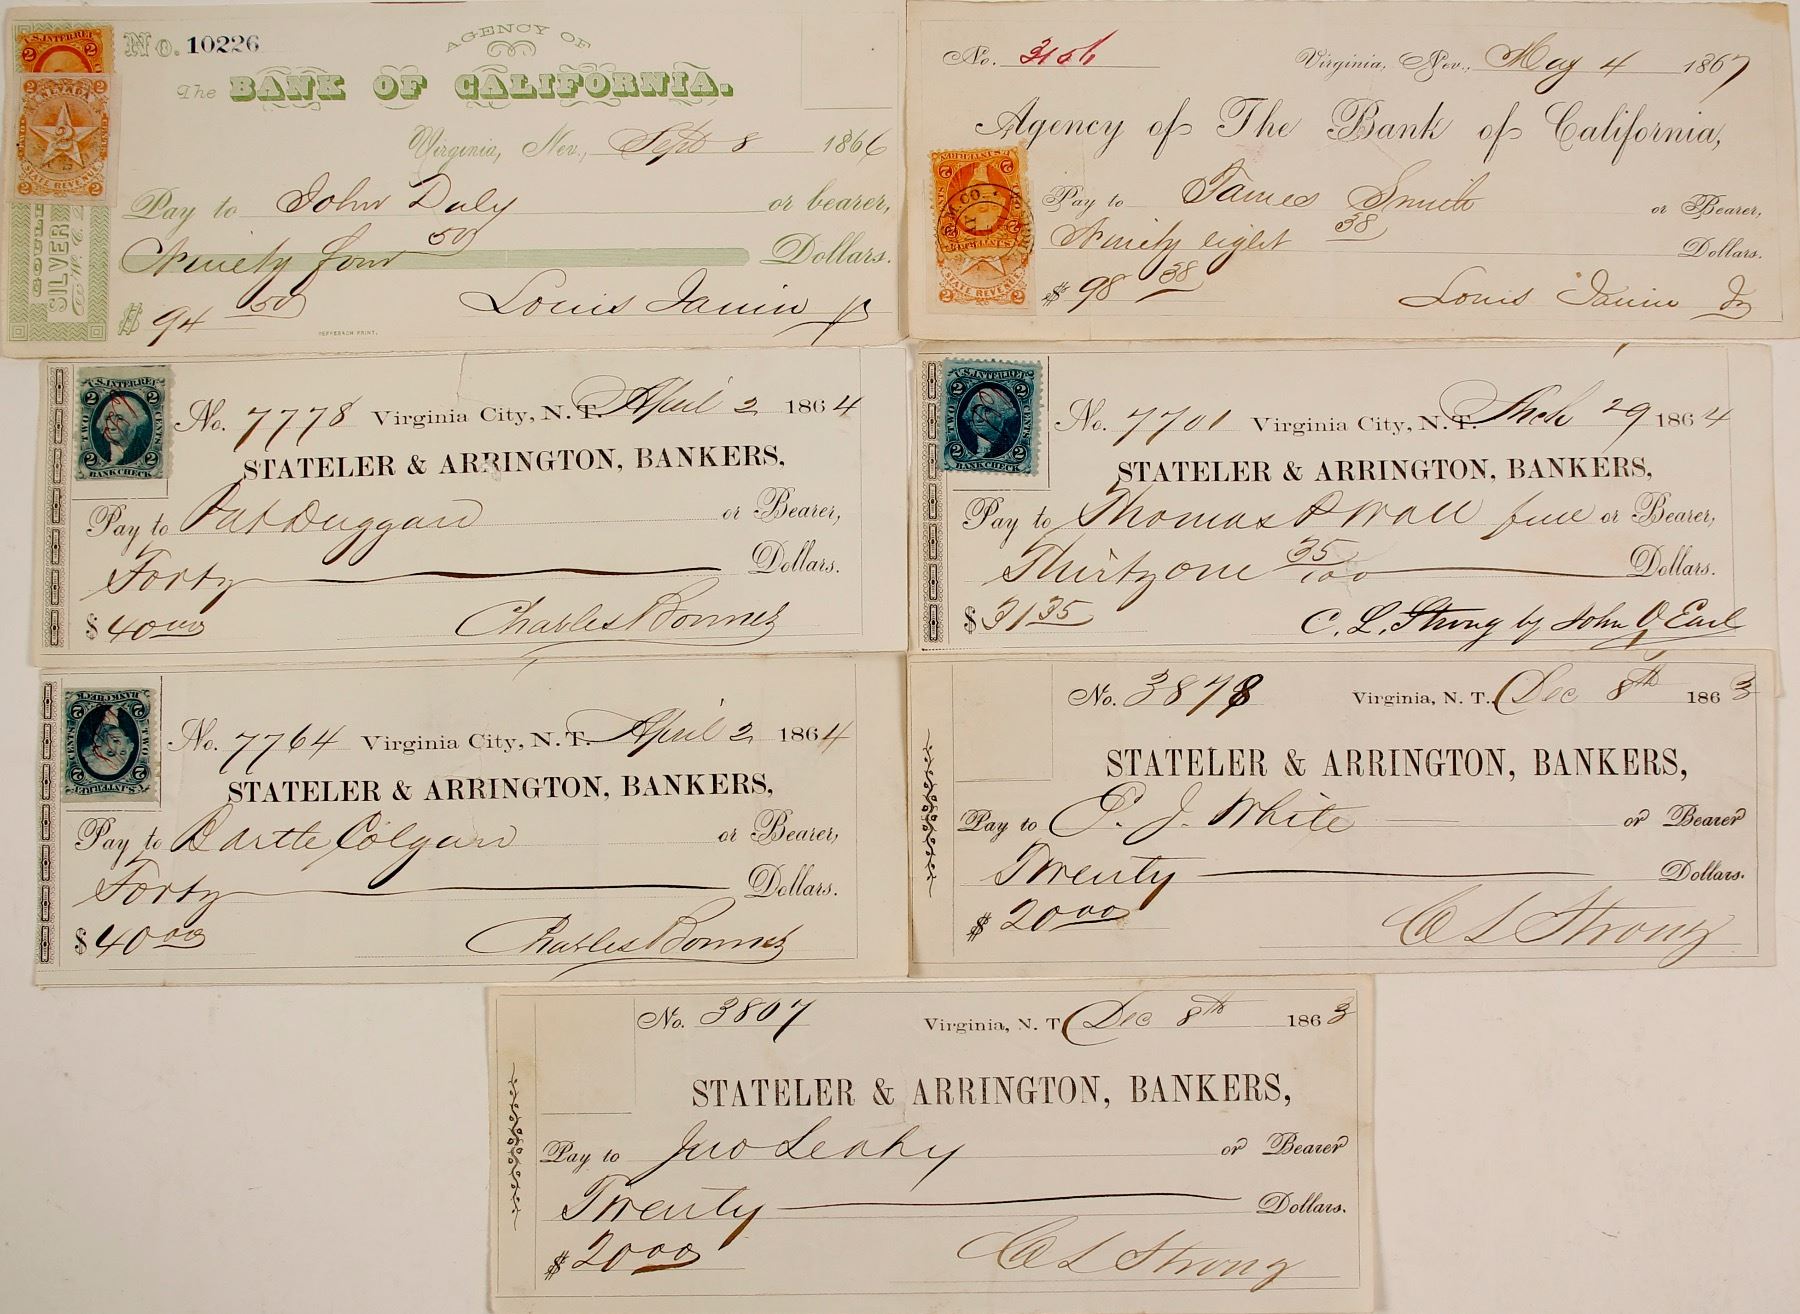 U.S. INTER. REV.
2 2
NEVADA
2
STATE REVENUE
SILVER
No. 10226
AGENCY OF
The BANK OF CALIFORNIA.
Virginia, Nev., Sept 8 1866
Pay to John Daly or bearer,
Ninety four 50 Dollars.
$ 94 50 Louis Janin Jr
No. 3156 Virginia, Nev., May 4 1867
Agency of The Bank of California,
Pay to James Smith or Bearer,
Ninety eight 38 Dollars.
STATE REVENUE
$ 98 38 Louis Janin Jr
U.S. INTER. REV.
2 2
TWO CENTS
BANK CHECK
No. 7778 Virginia City, N.T. April 2 1864
STATELER & ARRINGTON, BANKERS,
Pay to Pat Duggan or Bearer,
Forty Dollars.
$ 40 00 Charles Bonner
U.S. INTER. REV.
2 2
TWO CENTS
BANK CHECK
No. 7701 Virginia City, N.T. Mch 29 1864
STATELER & ARRINGTON, BANKERS,
Pay to Thomas P Wall or Bearer,
Thirty one 35/100 Dollars.
$ 31 35 C. L. Strong by John O Earl
U.S. INTER. REV.
TWO CENTS
BANK CHECK
No. 7764 Virginia City, N.T. April 2 1864
STATELER & ARRINGTON, BANKERS,
Pay to Bartle Colgan or Bearer,
Forty Dollars.
$ 40 00 Charles Bonner
No. 3878 Virginia, N. T. Dec 8th 1863
STATELER & ARRINGTON, BANKERS,
Pay to P. J. White or Bearer
Twenty Dollars.
$ 20 00 C L Strong
No. 3807 Virginia, N. T. Dec 8th 1863
STATELER & ARRINGTON, BANKERS,
Pay to Jno Leahy or Bearer
Twenty Dollars.
$ 20 00 C L Strong